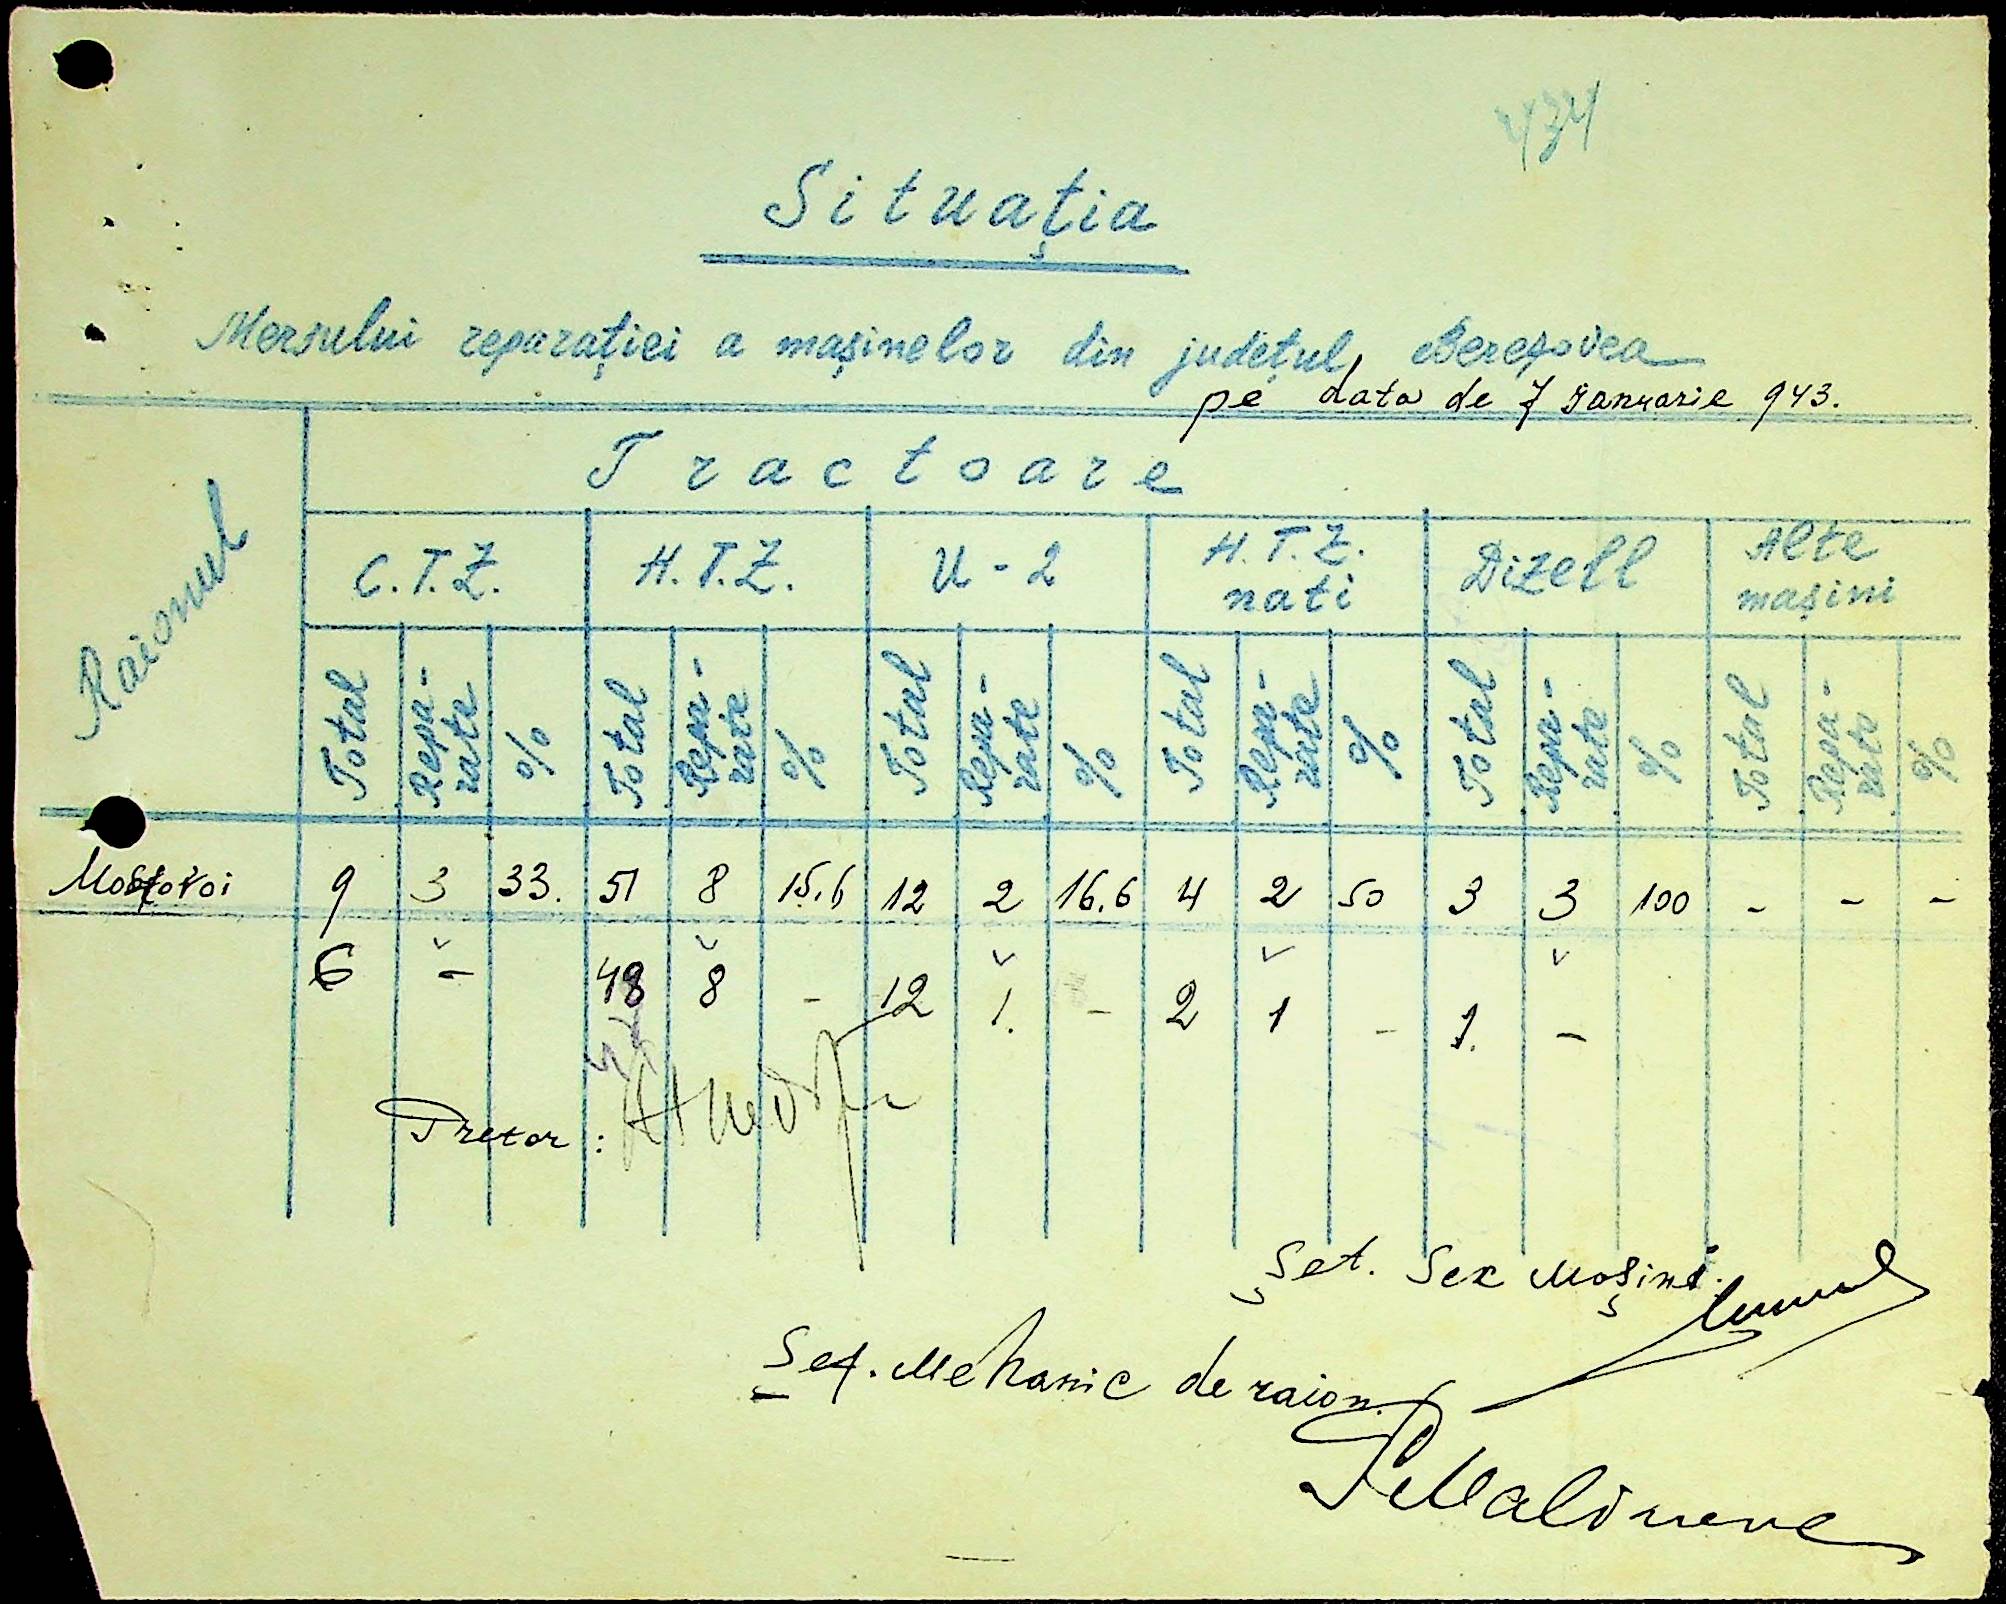 434
Situaţia
Mersului reparaţiei a maşinelor din judeţul Berezovca
pe data de 7 Ianuarie 943.
Raionul
Tractoare
C.T.Z. H.T.Z. U-2 H.T.Z. nati Dizell Alte maşini
Total Repa-rate % Total Repa-rate % Total Repa-rate % Total Repa-rate % Total Repa-rate % Total Repa-rate %
Mostovoi 9 3 33. 51 8 15.6 12 2 16.6 4 2 50 3 3 100 - - -
6 - 48 8 - 12 1. - 2 1 - 1. -
Pretor:
Şef. Sex Maşini.
Şef. Mehanic de raion.